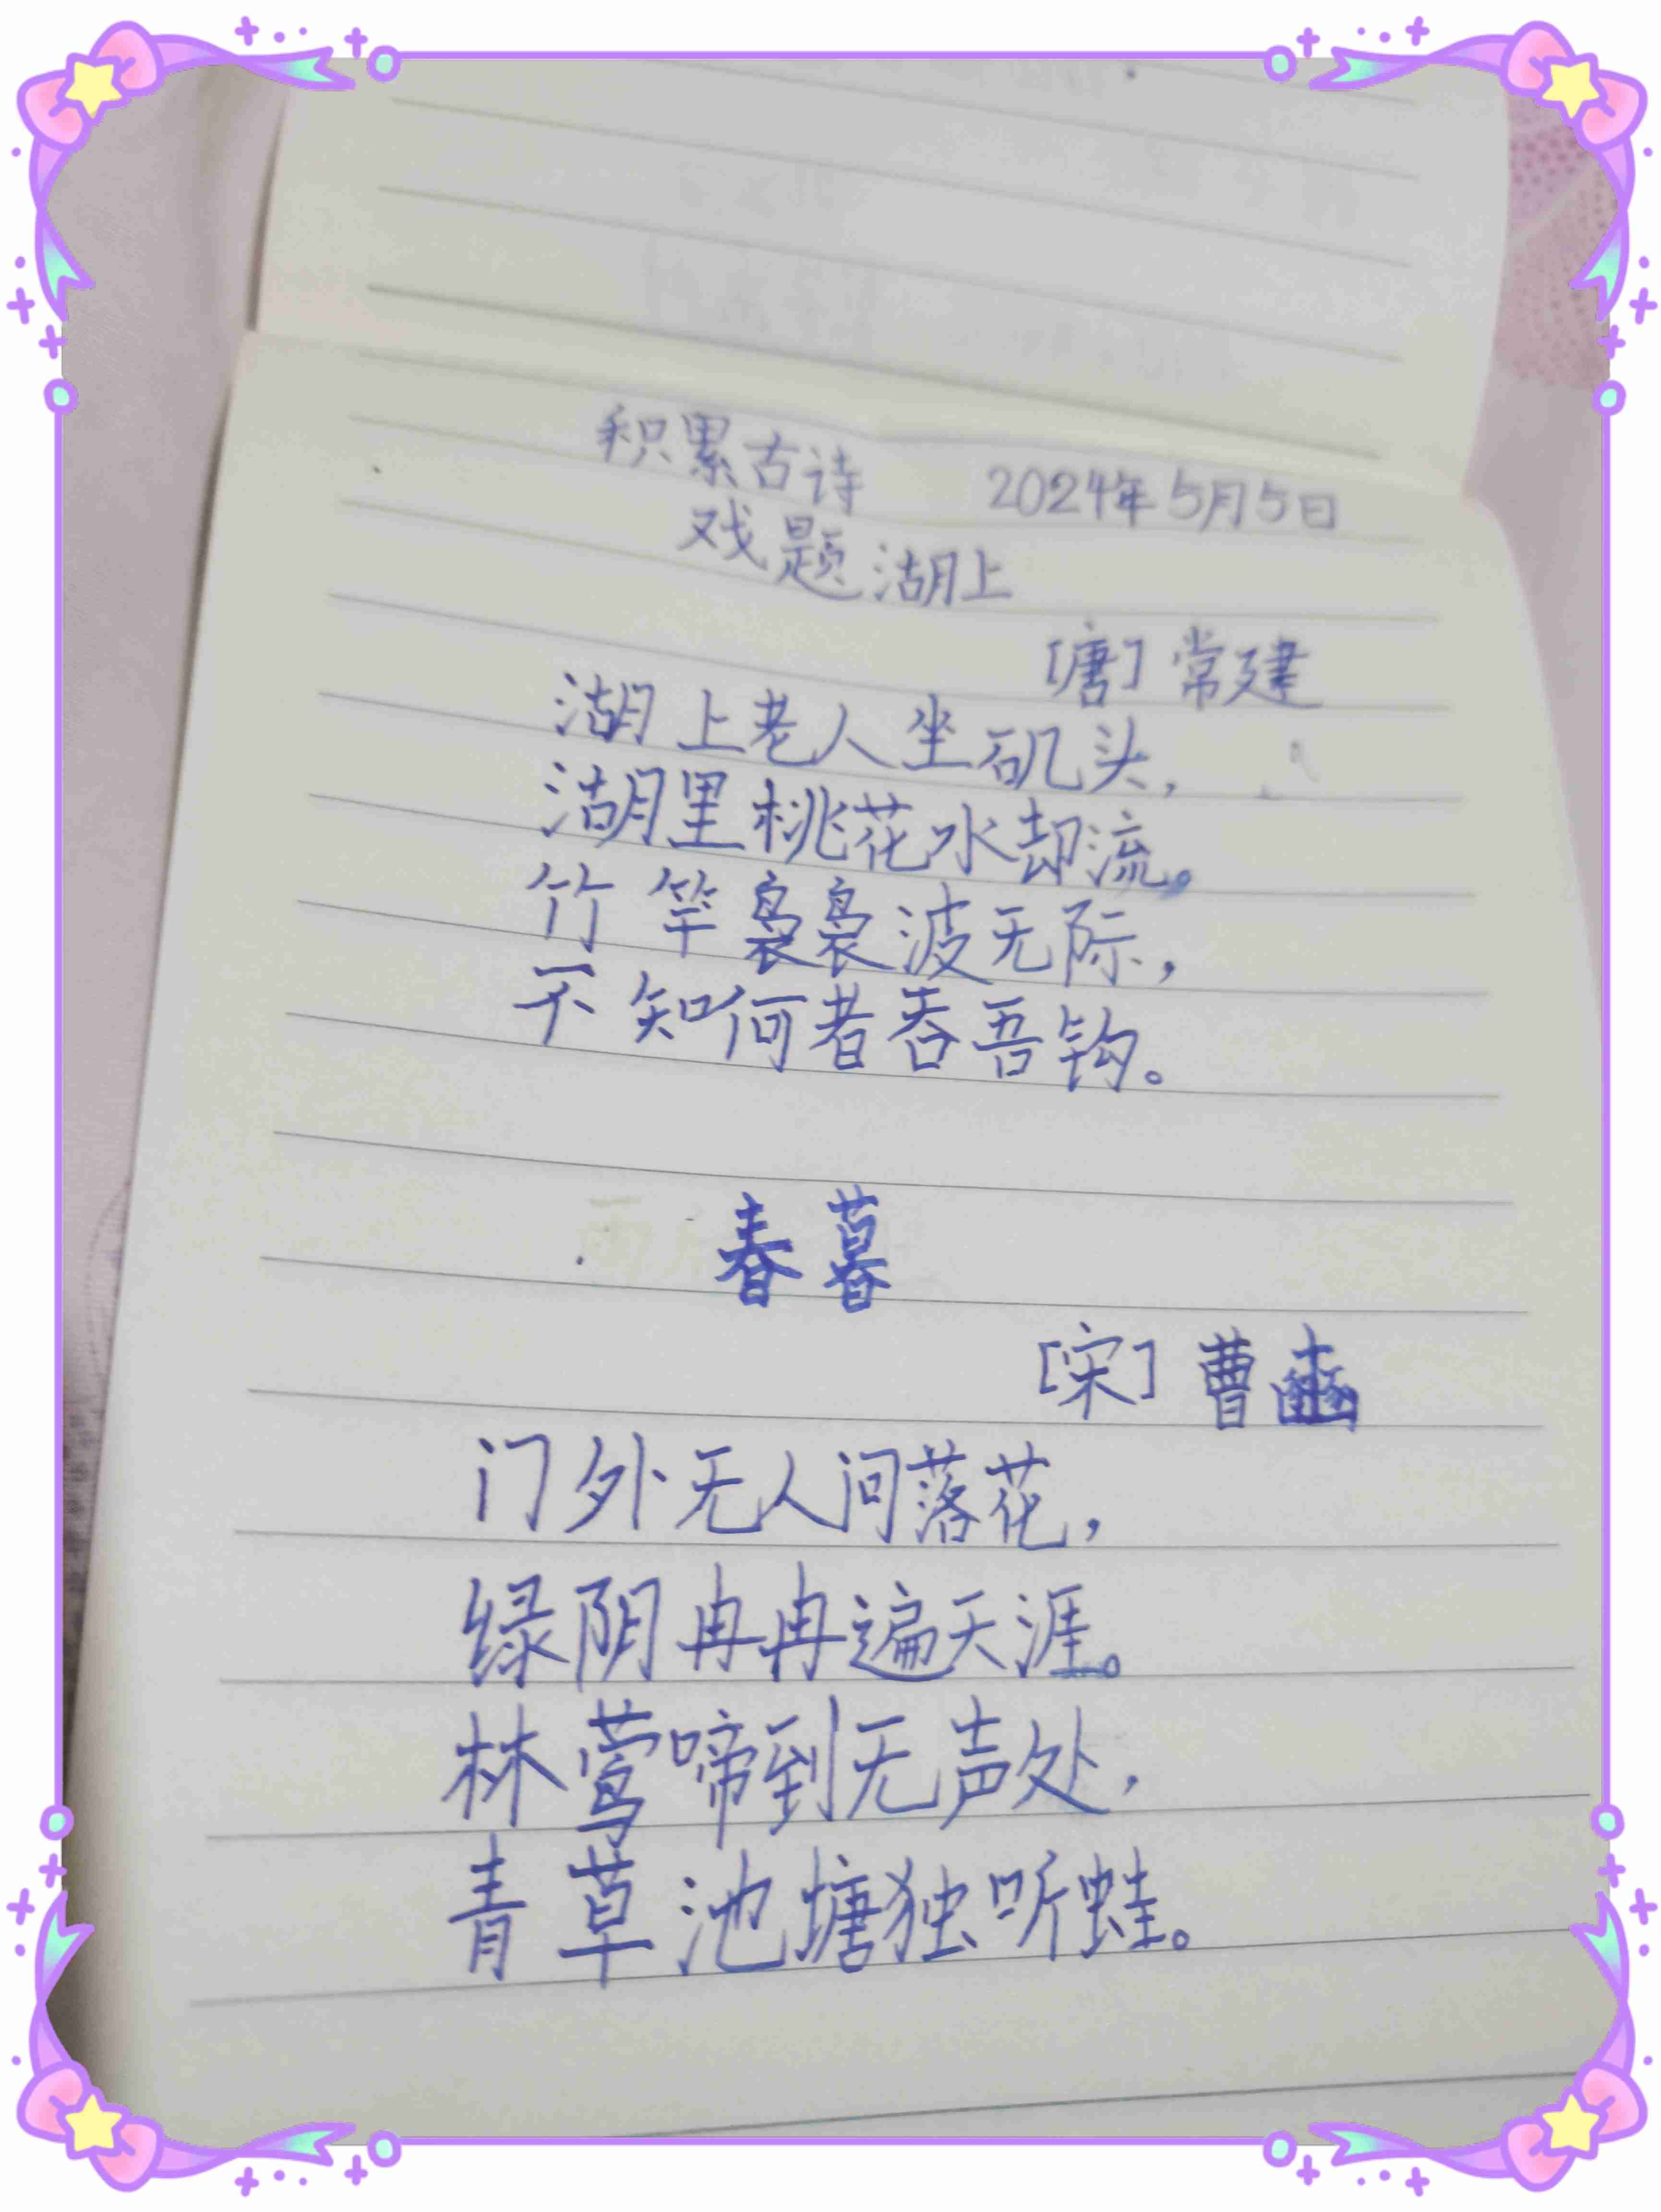 积累古诗 2024年5月5日
戏题湖上
[唐] 常建
湖上老人坐矶头，
湖里桃花水却流。
竹竿袅袅波无际，
不知何者吞吾钩。
春暮
[宋] 曹豳
门外无人问落花，
绿阴冉冉遍天涯。
林莺啼到无声处，
青草池塘独听蛙。